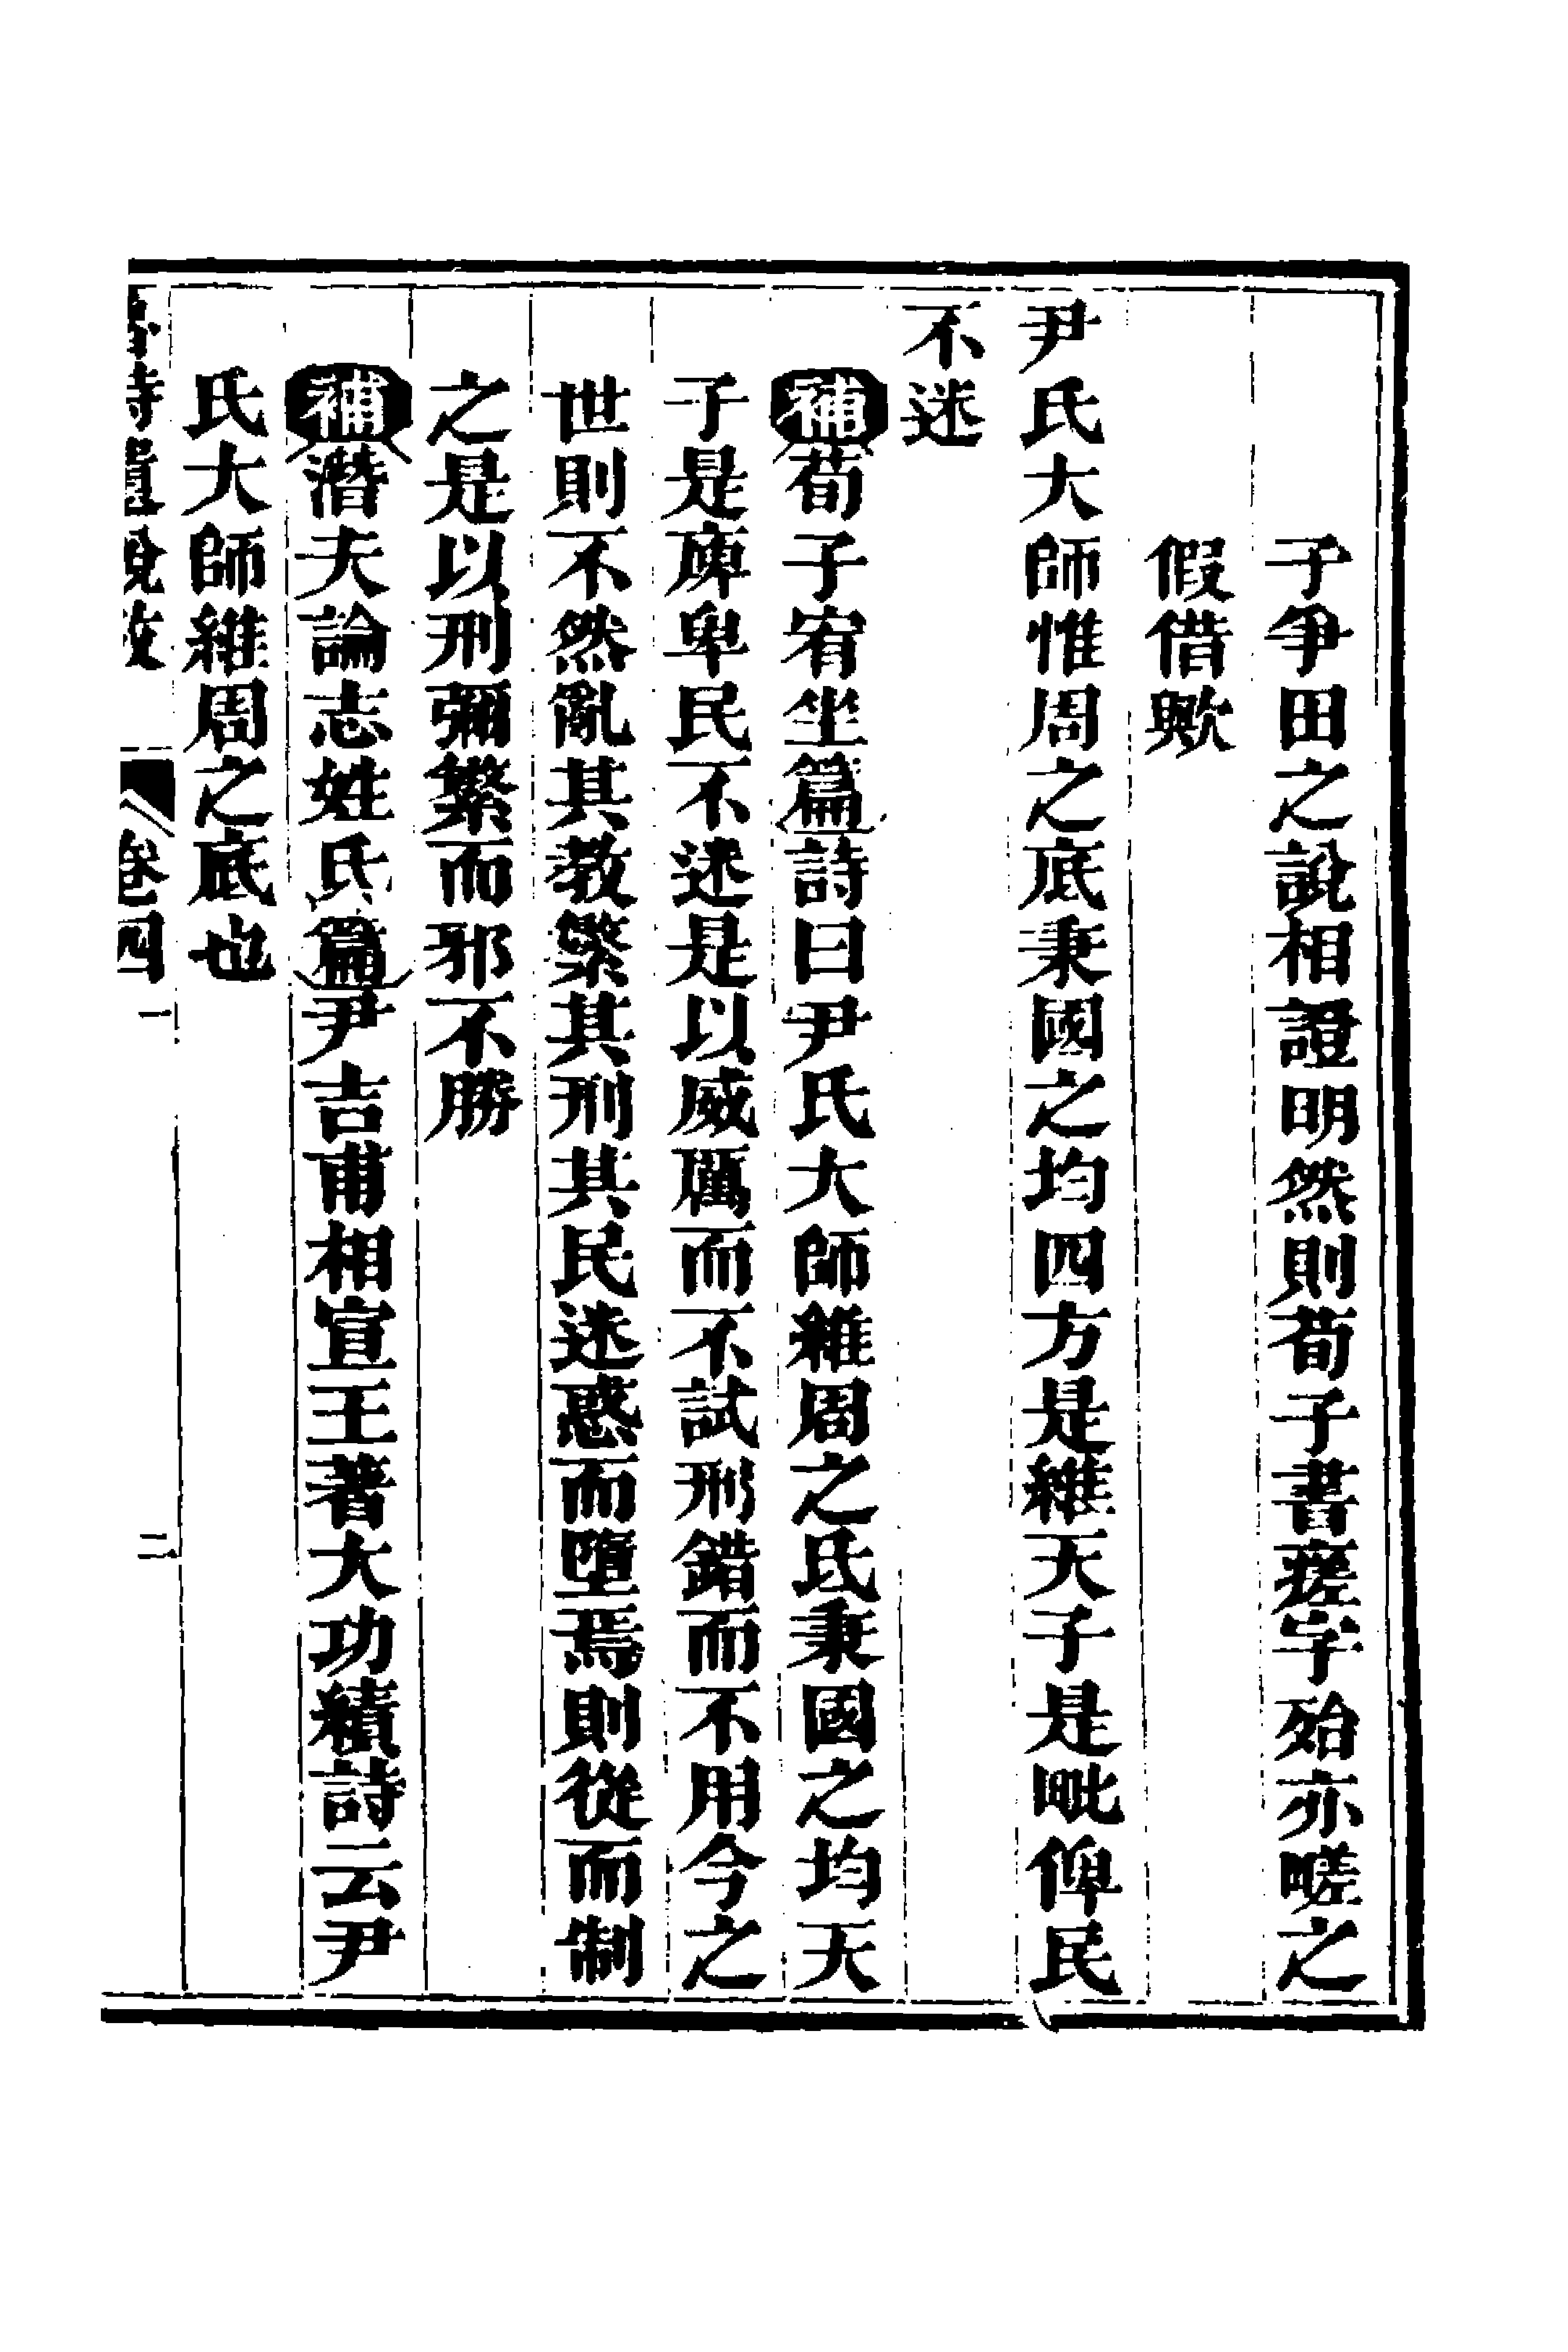 子爭田之說相證明然則荀子書瘥字殆亦䁟之
假借歟
尹氏大師惟周之底秉國之均四方是維天子是毗俾民
不迷
補荀子宥坐篇詩曰尹氏大師維周之氐秉國之均天
子是庳卑民不迷是以威厲而不試刑錯而不用今之
世則不然亂其教繁其刑其民迷惑而墮焉則從而制
之是以刑彌繁而邪不勝
補潛夫論志姓氏篇尹吉甫相宣王著大功績詩云尹
氏大師維周之底也
魯詩遺說攷 卷四一 二